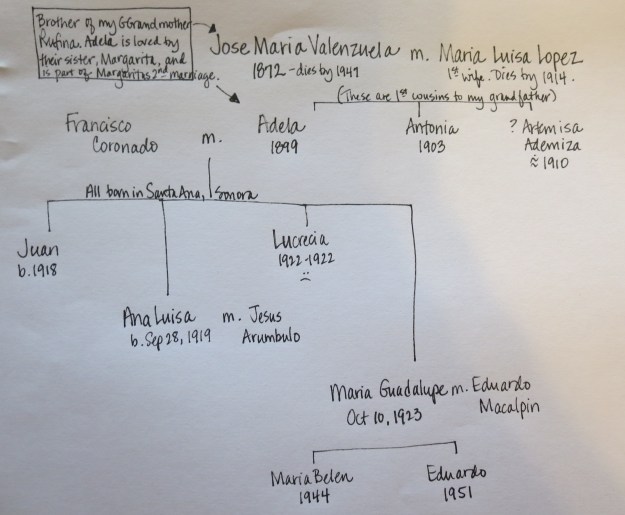 Brother of my GGrandmother
Rufina. Adela is loved by
their sister, Margarita, and
is part of Margaritas 2nd marriage.
Jose Maria Valenzuela m. Maria Luisa Lopez
1872 - dies by 1947
1st wife. Dies by 1914.
(These are 1st cousins to my grandfather)
Francisco
Coronado
m.
Adela
1899
Antonia
1903
? Artemisa
Ademiza
≈ 1910
All born in Santa Ana, Sonora
Juan
b. 1918
Lucrecia
1922-1922
:(
Ana Luisa m. Jesus
b. Sep 28, 1919 Arumbulo
Maria Guadalupe m. Eduardo
Oct 10, 1923 Macalpin
Maria Belen
1944
Eduardo
1951